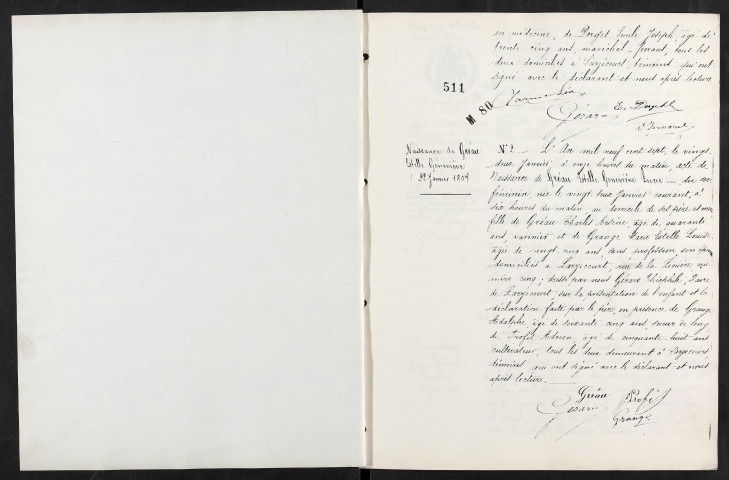 en médecine, de Dorget Emile Joseph, âgé de
trente cinq ans, maréchal-ferrant, tous les
deux domiciliés à Larzicourt, témoins qui ont
signé avec le déclarant et nous après lecture
511
M 80
Gérard
Naissance de Gréau
Estelle Geneviève
22 Janvier 1907
N° 2 L'An mil neuf cent sept, le vingt
deux Janvier, à onze heures du matin, acte de
Naissance de Gréau Estelle Geneviève Lucie du sexe
féminin née le vingt deux Janvier courant, à
six heures du matin au domicile de ses père et mère
fille de Gréau Charles Arsène, âgé de quarante
ans, vannier et de Grange Marie Estelle Louise
âgée de vingt cinq ans, sans profession, son épouse
domiciliés à Larzicourt, rue de la
cinq; dressé par nous Gérard Théophile, Maire
de Larzicourt, sur la présentation de l'enfant et la
déclaration faite par le père, en présence de Grange
Adolphe, âgé de soixante cinq ans, scieur de long
de Profit Adrien, âgé de cinquante huit ans
cultivateur, tous les deux demeurant à Larzicourt,
témoins qui ont signé avec le déclarant et nous
après lecture.
Gréau Profit
Gérard Grange